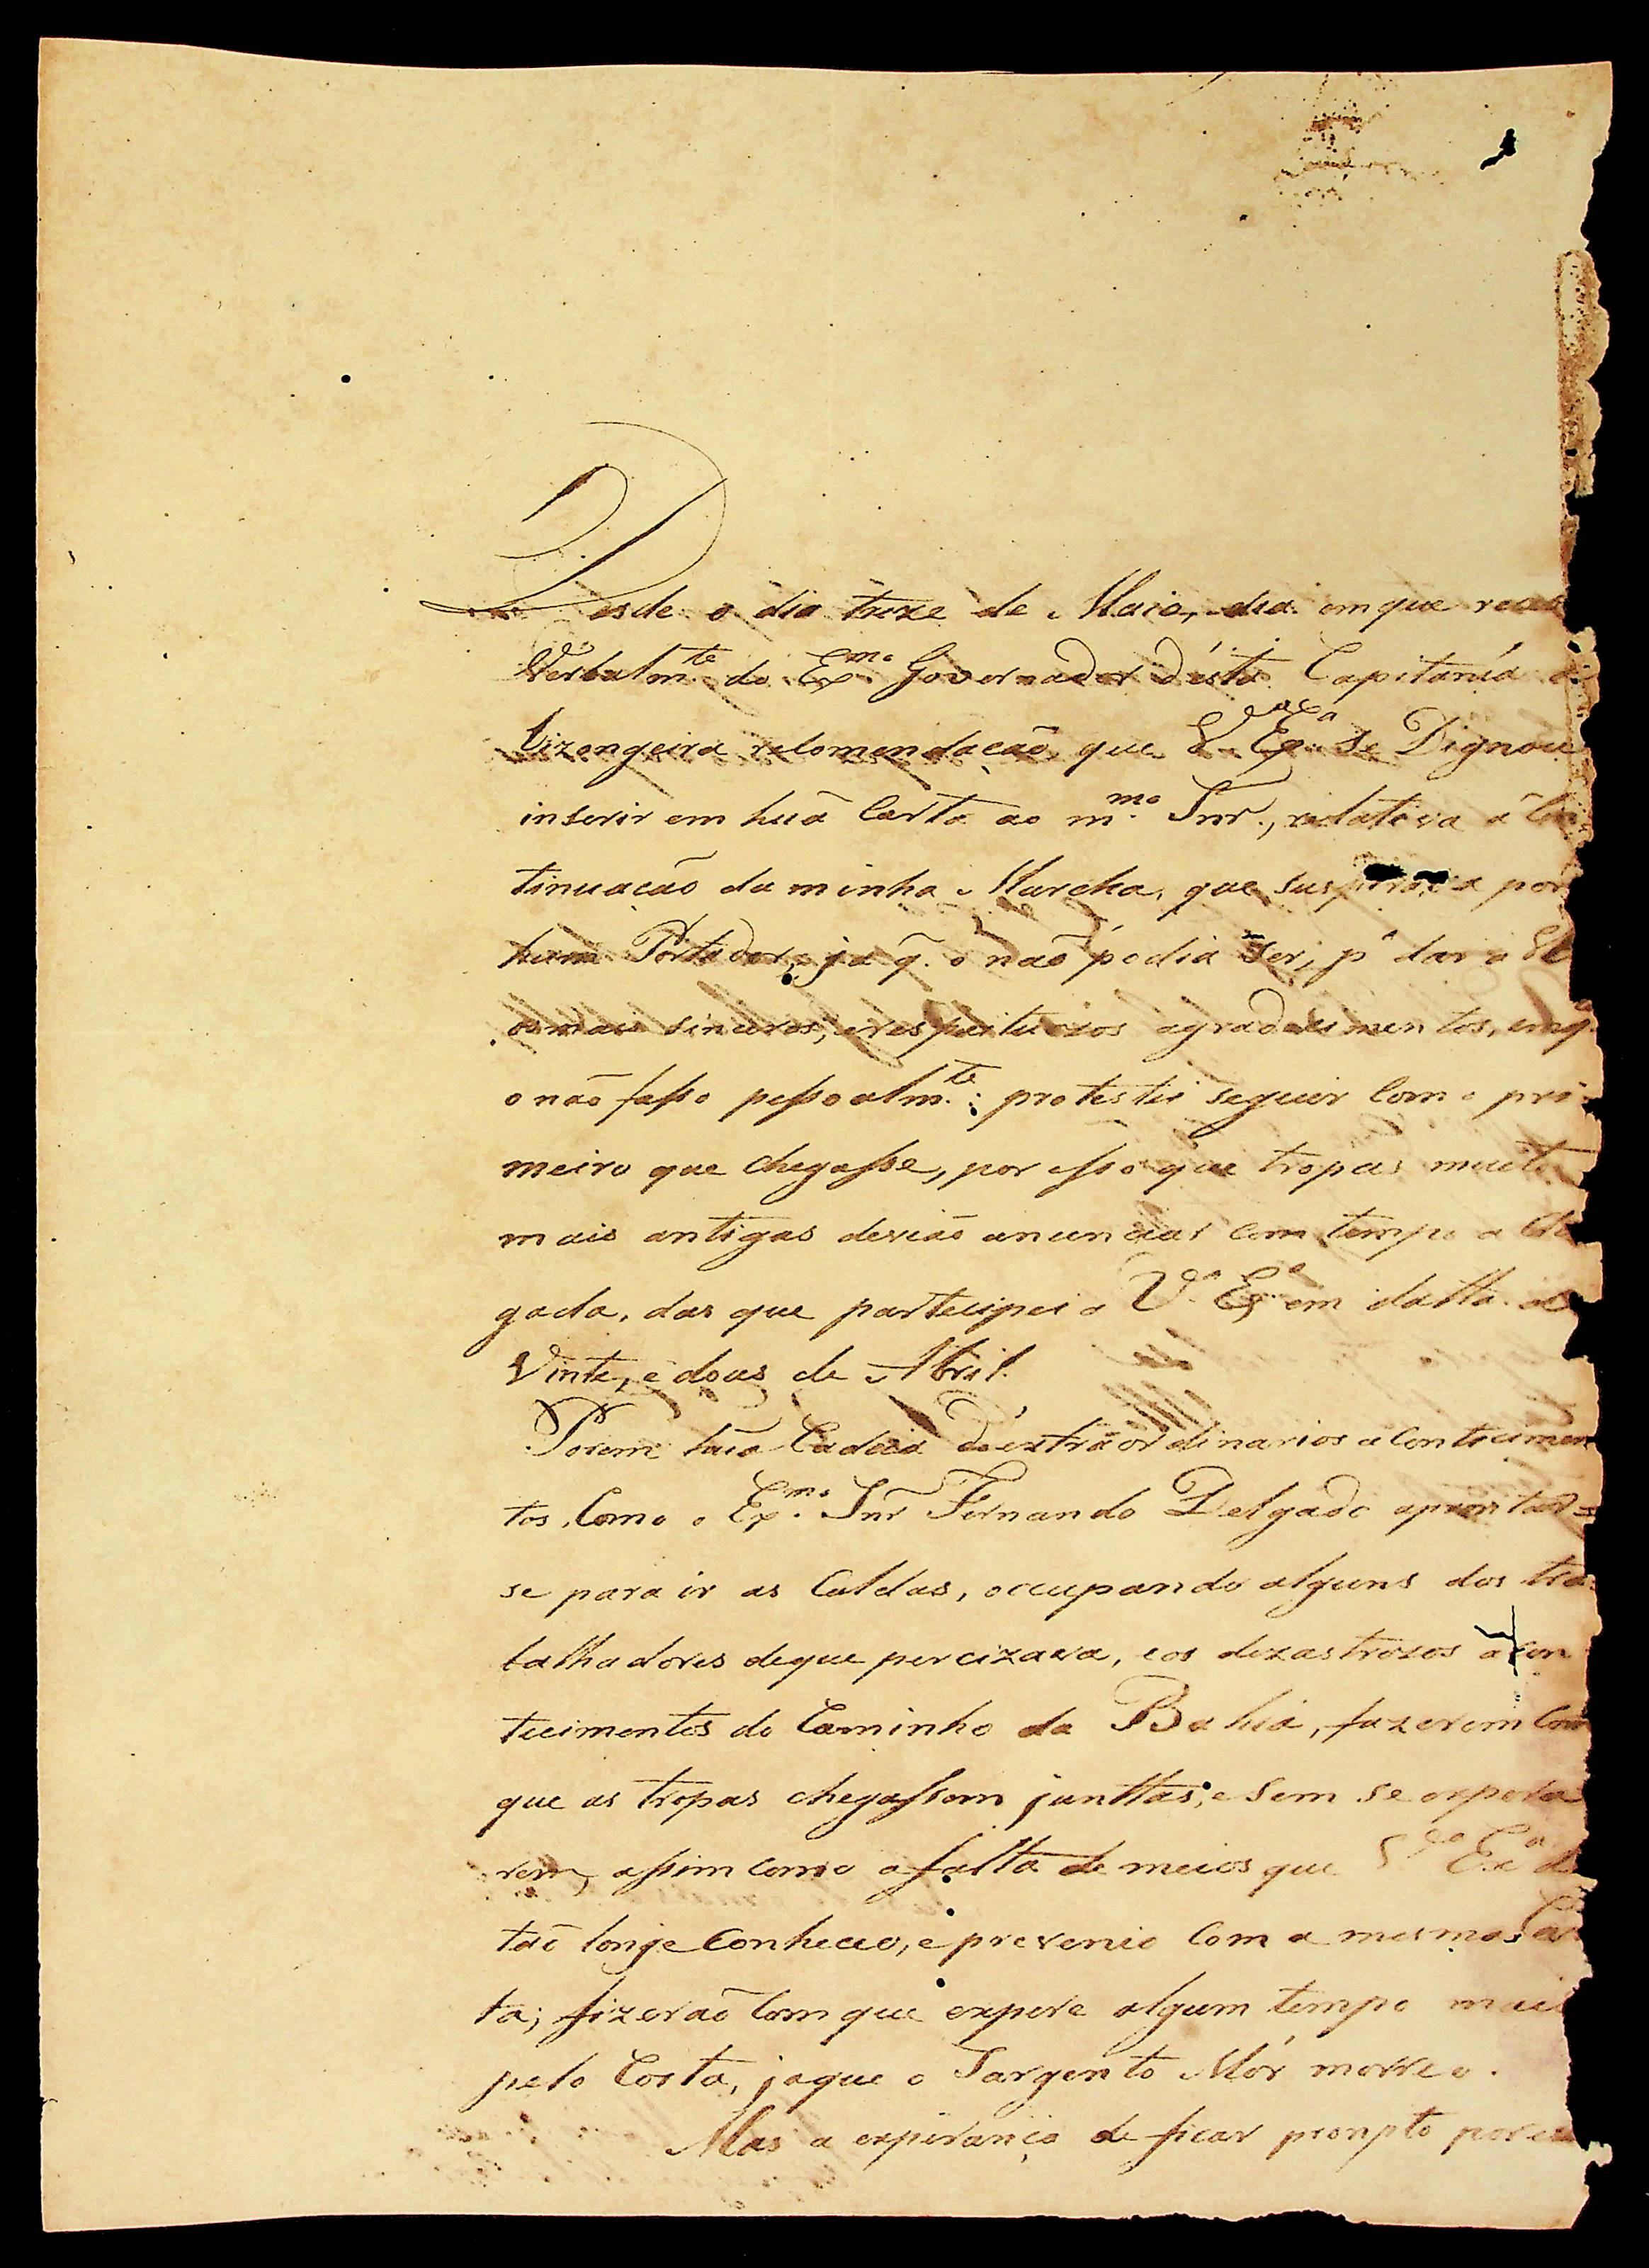 Desde o dia treze de Maio, dia em que
Verbalm.te do Ex.mo Governador d'ésta Capitanía a
Lizongeira recomendacaõ que V.a Ex.a se Dignou
inserir em huã Carta ao m.mo Snr., relativa á Con-
tinuacaõ da minha Marcha, que suspirava por
hum Portador, já q. o naõ podia ser, p.a dar a V
os mais sinceros, e respeituozos agradesimentos, em q
o naõ faſso peſsoalm.te: protestei seguir Com o pri-
meiro que chegaſse, por iſso que tropas muito
mais antigas deviaõ anunciar com tempo a Che
gada, das que partecipei a V.a Ex.a em datta de
Vinte, e dous de Abril.
Porem huã Cadeia d'extraordinarios acontecimen
tos, Como o Ex.mo Snr Fernando Delgado aprontar=
se para ir as Caldas, occupando alguns dos tra-
balhadores de que percizava, e os dezastrozos acon
tecimentos do Caminho da Bahia, fazerem Com
que as tropas chegaſsem junttas, e sem se expera
rem, aſsim como a falta de meios que V.a Ex.a de
taõ longe Conheceo, e prevenio Com a mesma Car
ta; fizeraõ Com que expere algum tempo mais
pelo Costa, ja que o Sargento Mór morreo.
Mas a experança de ficar prompto por